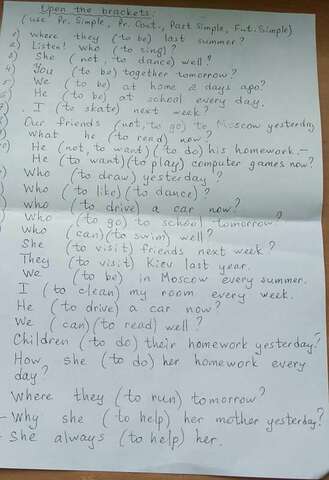 Open the brackets:
(use Pr. Simple, Pr. Cont., Past Simple, Fut. Simple)
1) Where they (to be) last summer?
2) Listen! Who (to sing)?
3) She (not, to dance) well?
You (to be) together tomorrow?
We (to be) at home 2 days ago?
He (to be) at school every day.
I (to skate) next week?
Our friends (not, to go) to Moscow yesterday
What he (to read) now?
He (not, to want) (to do) his homework.
He (to want) (to play) computer games now?
Who (to draw) yesterday?
Who (to like) (to dance)?
Who (to drive) a car now?
Who (to go) to school tomorrow?
Who (can) (to swim) well?
She (to visit) friends next week?
They (to visit) Kiev last year.
We (to be) in Moscow every summer.
I (to clean) my room every week.
He (to drive) a car now?
We (can) (to read) well?
Children (to do) their homework yesterday?
How she (to do) her homework every
day?
Where they (to run) tomorrow?
- Why she (to help) her mother yesterday?
- She always (to help) her.